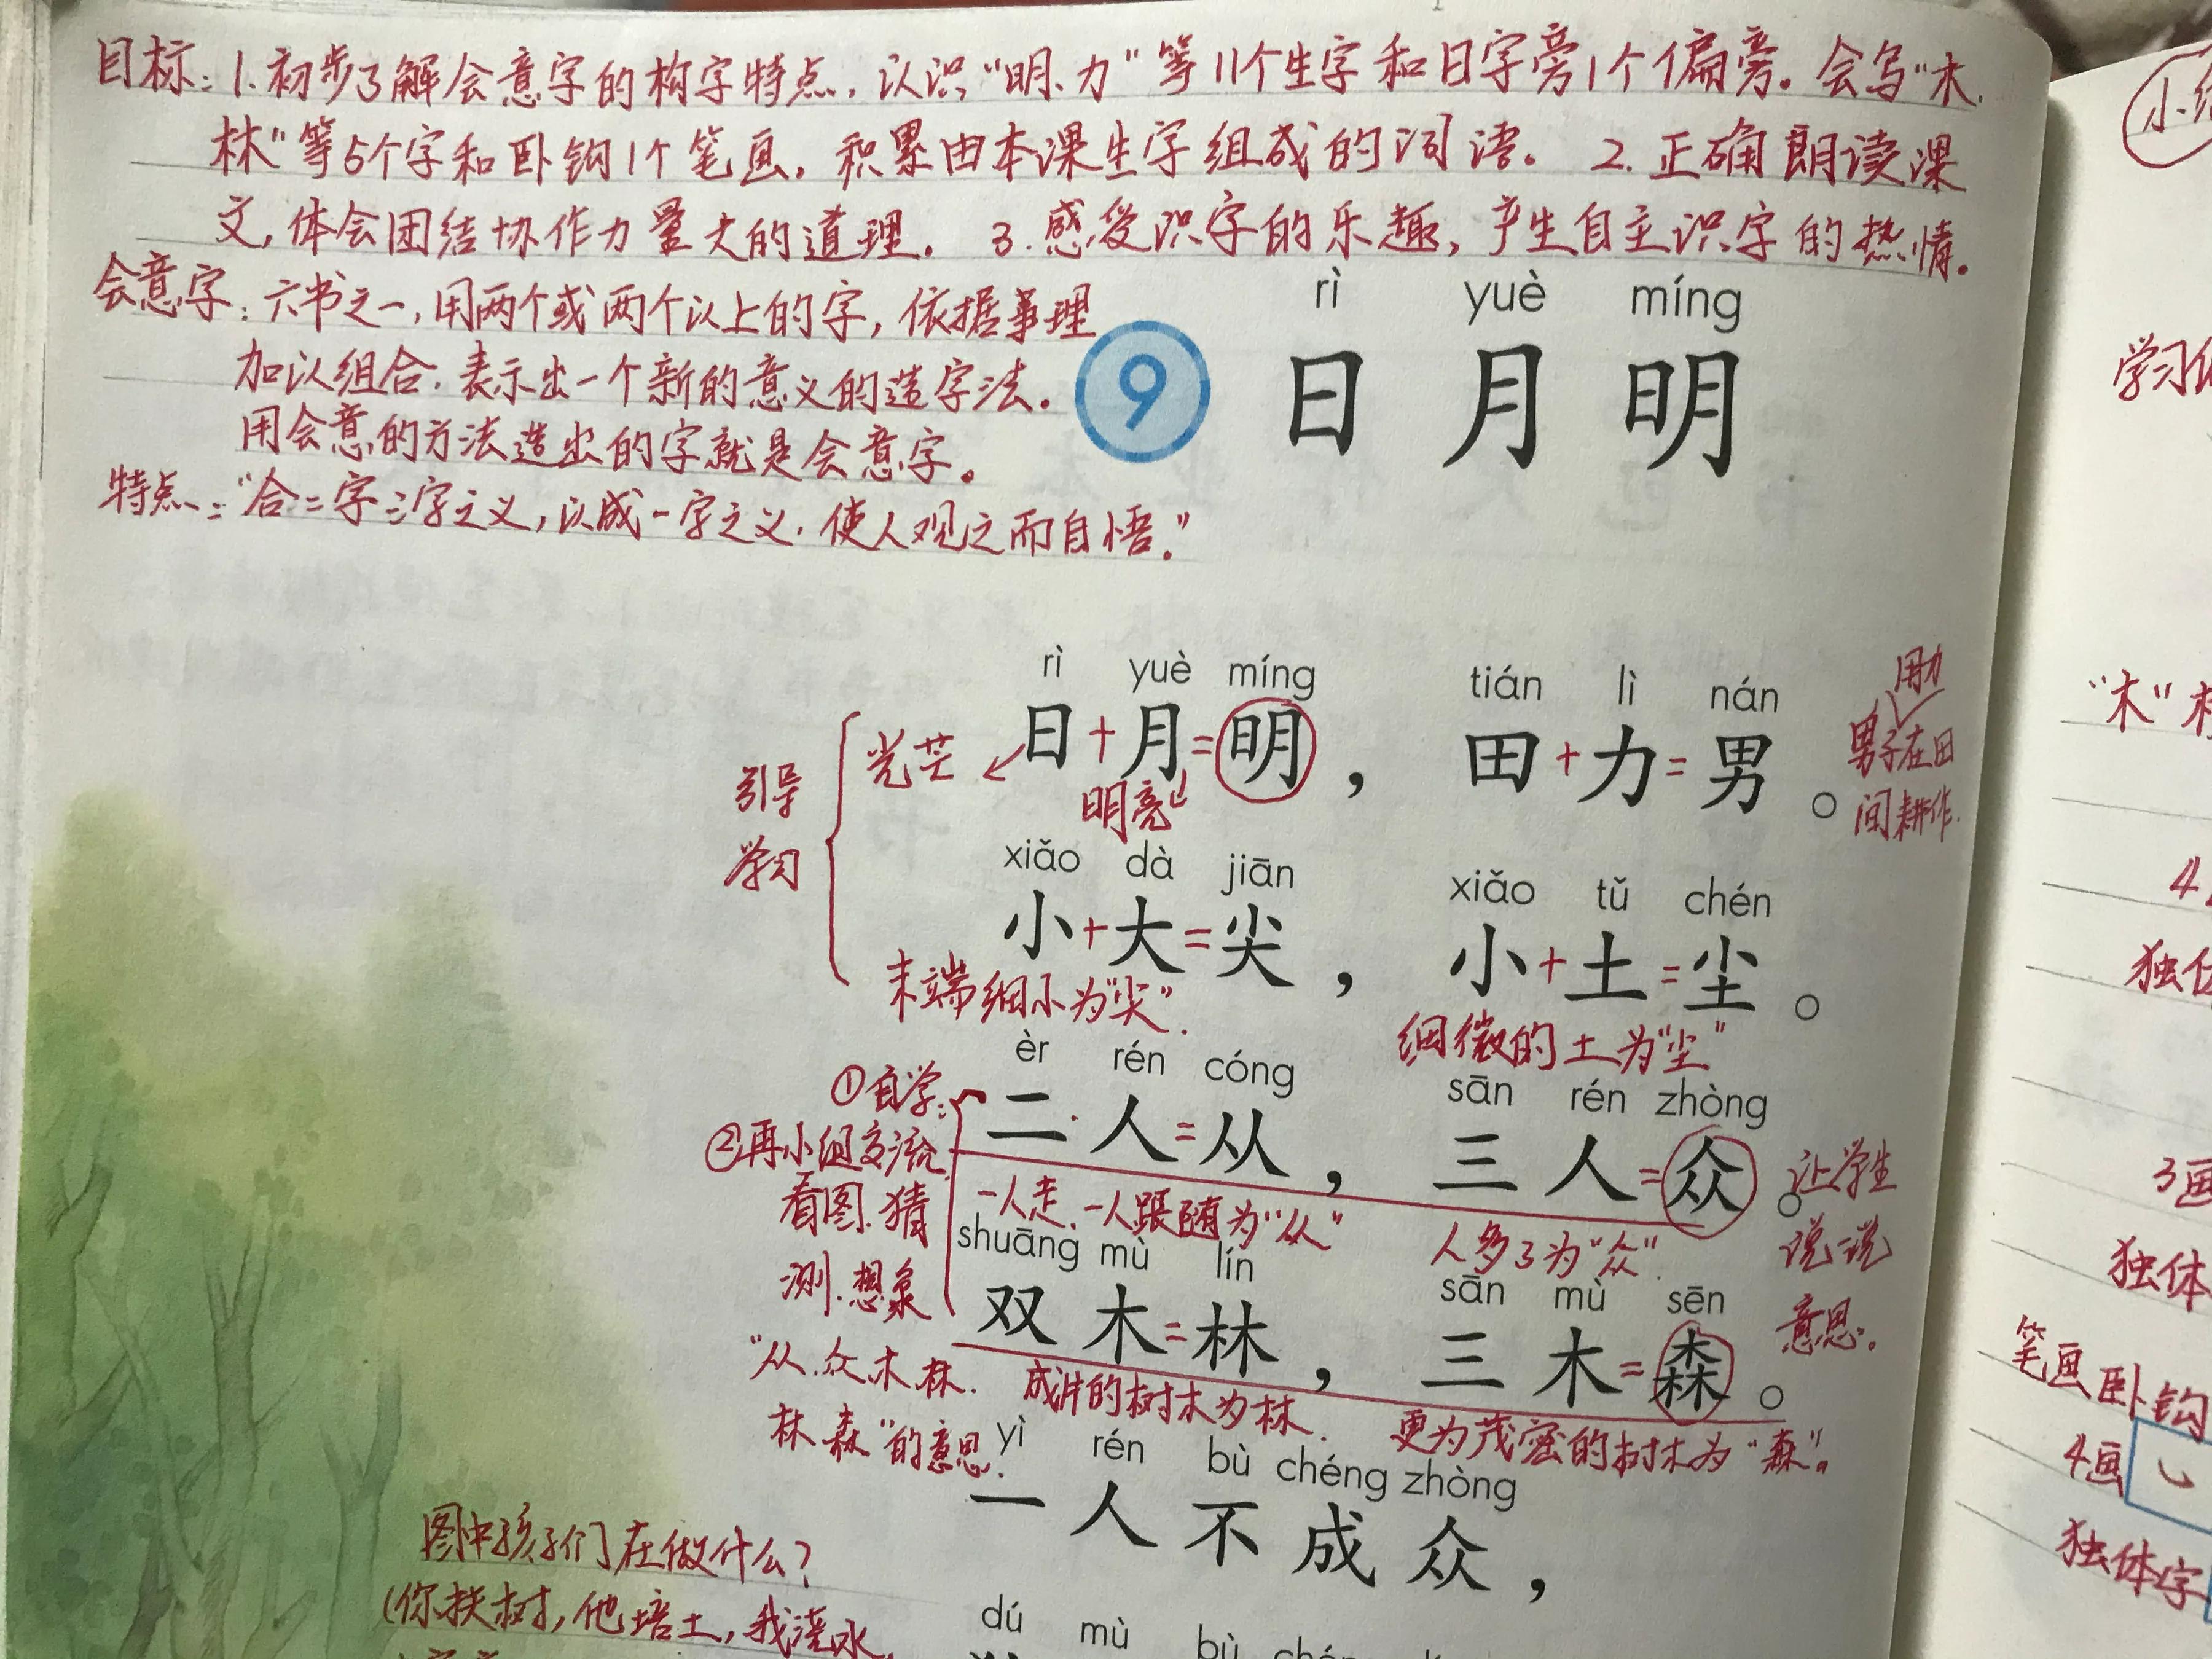 目标：1.初步了解会意字的构字特点，认识“明、力”等11个生字和日字旁1个偏旁。会写“木、
林”等5个字和卧钩1个笔画，积累由本课生字组成的词语。 2.正确朗读课
文，体会团结协作力量大的道理。 3.感受识字的乐趣，产生自主识字的热情。
会意字：六书之一，用两个或两个以上的字，依据事理
加以组合，表示出一个新的意义的造字法。
用会意的方法造出的字就是会意字。
特点：“合二字三字之义，以成一字之义，使人观之而自悟。”
rì yuè míng
9 日 月 明
rì yuè míng tián lì nán
日+月=明， 田+力=男。
光芒
明亮
用力
男子在田
间耕作.
引导
学习
xiǎo dà jiān xiǎo tǔ chén
小+大=尖， 小+土=尘。
末端细小为“尖”.
细微的土为“尘”
èr rén cóng sān rén zhòng
二 人=从， 三 人=众。
①自学：
②再小组交流
看图.猜
测.想象
“从.众木林.
林森”的意思.
一人走、一人跟随为“从”
人多了为“众”.
让学生
说一说
意思。
shuāng mù lín sān mù sēn
双 木=林， 三 木=森。
成片的树木为林.
更为茂密的树木为“森”。
yì rén bù chéng zhòng
一 人 不 成 众，
图中孩子们在做什么？
(你扶树，他培土，我浇水，
dú mù bù
小
学习
“木”
4
独
3画
独体
笔画卧钩
4画
独体字